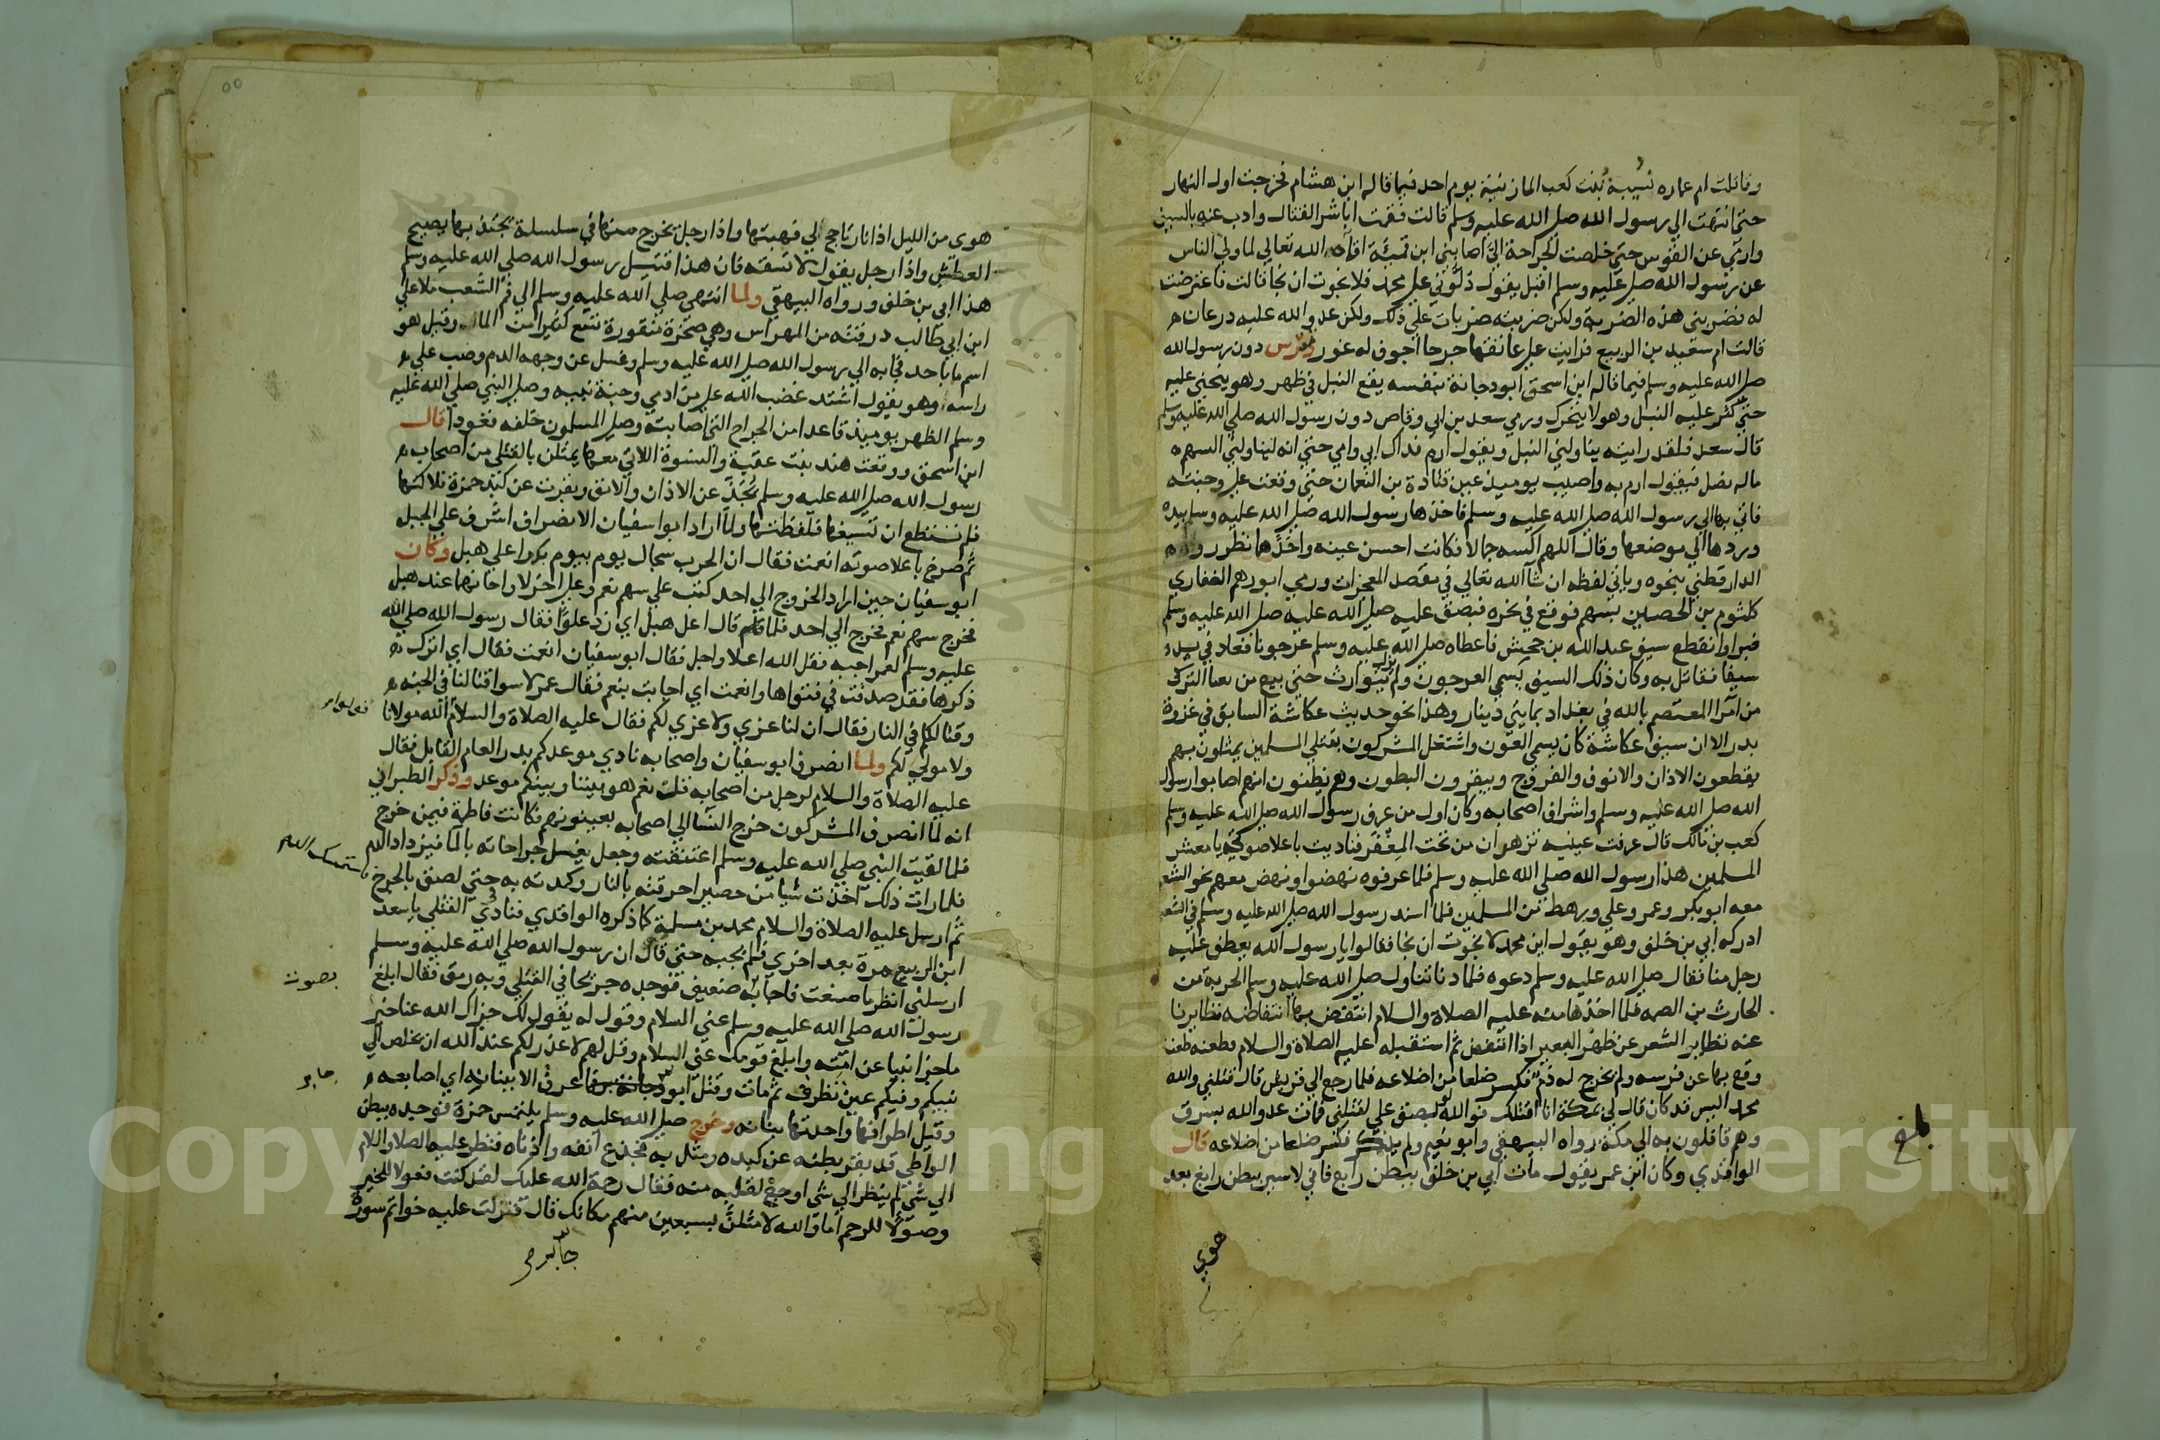 وقاتلت ام عماره نسيبة بنت كعب المازنية يوم احد فيما قاله ابن هشام فخرجت اول النهار
حتى انتهت الي رسول الله صلى الله عليه وسلم قالت فقمت اباشر القتال واذب عنه بالسيف
وارمي عن القوس حتى خلصت الجراحة الي اصابني ابن قمئة اقمأه الله تعالي لما ولي الناس
عن رسول الله صلى عليه وسلم اقبل يقول دلوني على محمد فلا نجوت ان نجا قالت فاعترضت
له فضربني هذه الضربة ولكن ضربته ضربات علي ذلك ولكن عدو الله عليه درعان
قالت ام سعيد بن الربيع فرايت على عاتقها جرحا اجوف له غور وترس دون رسول الله
صلى الله عليه وسلم فيما قاله ابن اسحق ابو دجانة بنفسه يقع النبل في ظهره وهو ينحني عليه
حتى كثر عليه النبل وهو لا يتحرك ورمي سعد بن ابي وقاص دون رسول الله صلى الله عليه وسلم
قال سعد فلقد رايته يناولني النبل ويقول ارم فداك ابي وامي حتى انه ليناولني السهم
ماله نصل فيقول ارم به واصيب يوميذ عين قتادة بن النعمان حتى وقعت على وجنته
فاتي بها الي رسول الله صلى الله عليه وسلم فاخذها رسول الله صلى الله عليه وسلم بيده
وردها الي موضعها وقال اللهم اكسه جمالا فكانت احسن عينيه واحدهما نظرا ورواه
الدارقطني بنحوه وياتي لفظه ان شاالله تعالي في مقصد المعجزات ورمي ابو رهم الغفاري
كلثوم بن الحصين بسهم فوقع في نحره فبصق عليه صلى الله عليه صلى الله عليه وسلم
فبرا وانقطع سيف عبد الله بن جحش فاعطاه صلى الله عليه وسلم عرجونا فعاد في يده
سيفا فقاتل به وكان ذلك السيف يسمي العرجون ولم يزل يتوارث حتى بيع من بغا التركي
من امرا المعتصم بالله في بغداد بمايتي دينار وهذا نحو حديث عكاشة السابق في غزوة
بدر الا ان سيف عكاشة كان يسمي العون واشتغل المشركون بقتلي المسلمين يمثلون بهم
يقطعون الاذان والانوف والفروج ويبقرون البطون وهم يظنون انهم اصابوا رسول
الله صلى الله عليه وسلم واشراف اصحابه وكان اول من عرف رسول الله صلى الله عليه وسلم
كعب بن مالك قال عرفت عينيه تزهران من تحت المغفر فناديت باعلا صوتي يا معشر
المسلمين هذا رسول الله صلي الله عليه وسلم فلما عرفوه نهضوا ونهض معهم نحو الشعب
معه ابو بكر وعمر وعلي ورهط من المسلمين فلما اسند رسول الله صلى الله عليه وسلم في الشعب
ادركه ابي بن خلف وهو يقول اين محمد لا نجوت ان نجا فقالوا يا رسول الله يعطف عليه
رجل منا فقال صلى الله عليه وسلم دعوه فلما دنا تناول صلى الله عليه وسلم الحربة من
الحارث بن الصمه فلما اخذها منه عليه الصلاة والسلام انتفض بها انتفاضه تطايرنا
عنه تطاير الشعر عن ظهر البعير اذا انتفض ثم استقبله عليه الصلاة والسلام فطعنه طعنة
وقع بها عن فرسه ولم يخرج له دم فكسر ضلعا من اضلاعه فلما رجع الي قريش قال قتلني والله
محمد اليس قد كان قال لي بمكة انا اقتلك فوالله لو بصق علي لقتلني فمات عدو الله بسرف
وهم قافلون به الي مكة رواه البيهقي وابو نعيم ولم يذكر فكسر ضلعا من اضلاعه قال
الواقدي وكان ابن عمر يقول مات ابي بن خلف ببطن رابغ فاني لاسير ببطن رابغ بعد
هوي
بلغ
هوي من الليل اذا نار تاجج لي فهبتها واذا رجل يخرج منها في سلسلة يجتذبها يصيح
العطش واذا رجل يقول لا تسقه فان هذا قتيل رسول الله صلي الله عليه وسلم
هذا ابي بن خلف ورواه البيهقي ولما انتهي صلي الله عليه وسلم الي فم الشعب ملا علي
ابن ابي طالب درقته من المهراس وهي صخرة منقورة تسع كثيرا من الماء وقيل هو
اسم ما باحد فجا به الي رسول الله صلى الله عليه وسلم وغسل عن وجهه الدم وصب علي
راسه وهو يقول اشتد غضب الله على من ادمي وجه نبيه وصلى النبي صلى الله عليه
وسلم الظهر يوميذ قاعدا من الجراح التي اصابته وصلى المسلمون خلفه قعودا قال
ابن اسحق ووقعت هند بنت عقبة والنسوة اللاتي معها يمثلن بالقتلي من اصحاب
رسول الله صلى الله عليه وسلم يجدعن الاذان والانف وبقرت عن كبد حمزة فلاكتها
فلم تستطع ان تسيغها فلفظتها ولما اراد ابو اسفيان الانصراف اشرف علي الجبل
ثم صرخ باعلا صوته انعمت فقال ان الحرب سجال يوم بيوم بدر اعلي هبل وكان
ابو سفيان حين اراد الخروج الي احد كتب علي سهم نعم وعلى اخر لا واجالهما عند هبل
فخرج سهم نعم فخرج الي احد فلما قال اعل هبل اي زد علوا فقال رسول الله صلي الله
عليه وسلم لعمر اجبه فقل الله اعلا واجل فقال ابو سفيان انعمت فقال اي اترك
ذكرها فقد صدقت في فتواها وانعمت اي اجابت بنعم فقال عمر لا سوا قتلانا في الجنه
وقتلاكم في النار فقال ان لنا عزي ولا عزي لكم فقال عليه الصلاة والسلام الله مولانا
ولا مولي لكم ولما انصرف ابو سفيان واصحابه نادي موعدكم بدر العام القابل فقال
عليه الصلاة والسلام لرجل من اصحابه قل نعم هو بيننا وبينكم موعد وذكر الطبراني
انه لما انصرف المشركون خرج النسا الي اصحابه يعينونهم فكانت فاطمة فيمن خرج
فلما لقيت النبي صلي الله عليه وسلم اعتنقته وجعل يغسل جراحاته بالما فيزداد الدم
فلما رات ذلك اخذت شيا من حصير احرقته بالنار وكمدته به حتي لصق بالجرح
فاستمسك الدم
ثم ارسل عليه الصلاة والسلام محمد بن مسلمة كما ذكره الواقدي فنادي في القتلي يا سعد
ابن الربيع مرة بعد اخري فلم يجبه حتى قال ان رسول الله صلى الله عليه وسلم
ارسلني انظر ما صنعت فاجابه ضعيف فوجده جريحا في القتلي وبه رمق فقال ابلغ
بصوت
رسول الله صلي الله عليه وسلم عني السلام وقول له يقول لك جزاك الله عنا خير
ما جزا نبيا عن امته وابلغ قومك عني السلام وقل لهم لا عذر لكم عند الله ان يخلص الي
نبيكم وفيكم عين تطرف ثم مات وقتل ابو جابر فما عرف الا ببنانه اي اصابعه
جابر
وقيل اطرافها واحدتها بنانه وخرج صلى الله عليه وسلم يلتمس حمزة فوجده ببطن
الوادي قد بقر بطنه عن كبده ومثل به فجدع انفه واذناه فنظر عليه الصلاه والسلام
الي شي لم ينظر الي شي اوجع لقلبه منه فقال رحمة الله عليك لقد كنت فعولا للخير
وصولا للرحم اما والله لامثلن بسبعين منهم مكانك قال فنزلت عليه خواتم سورة
Copyright © King Saud University